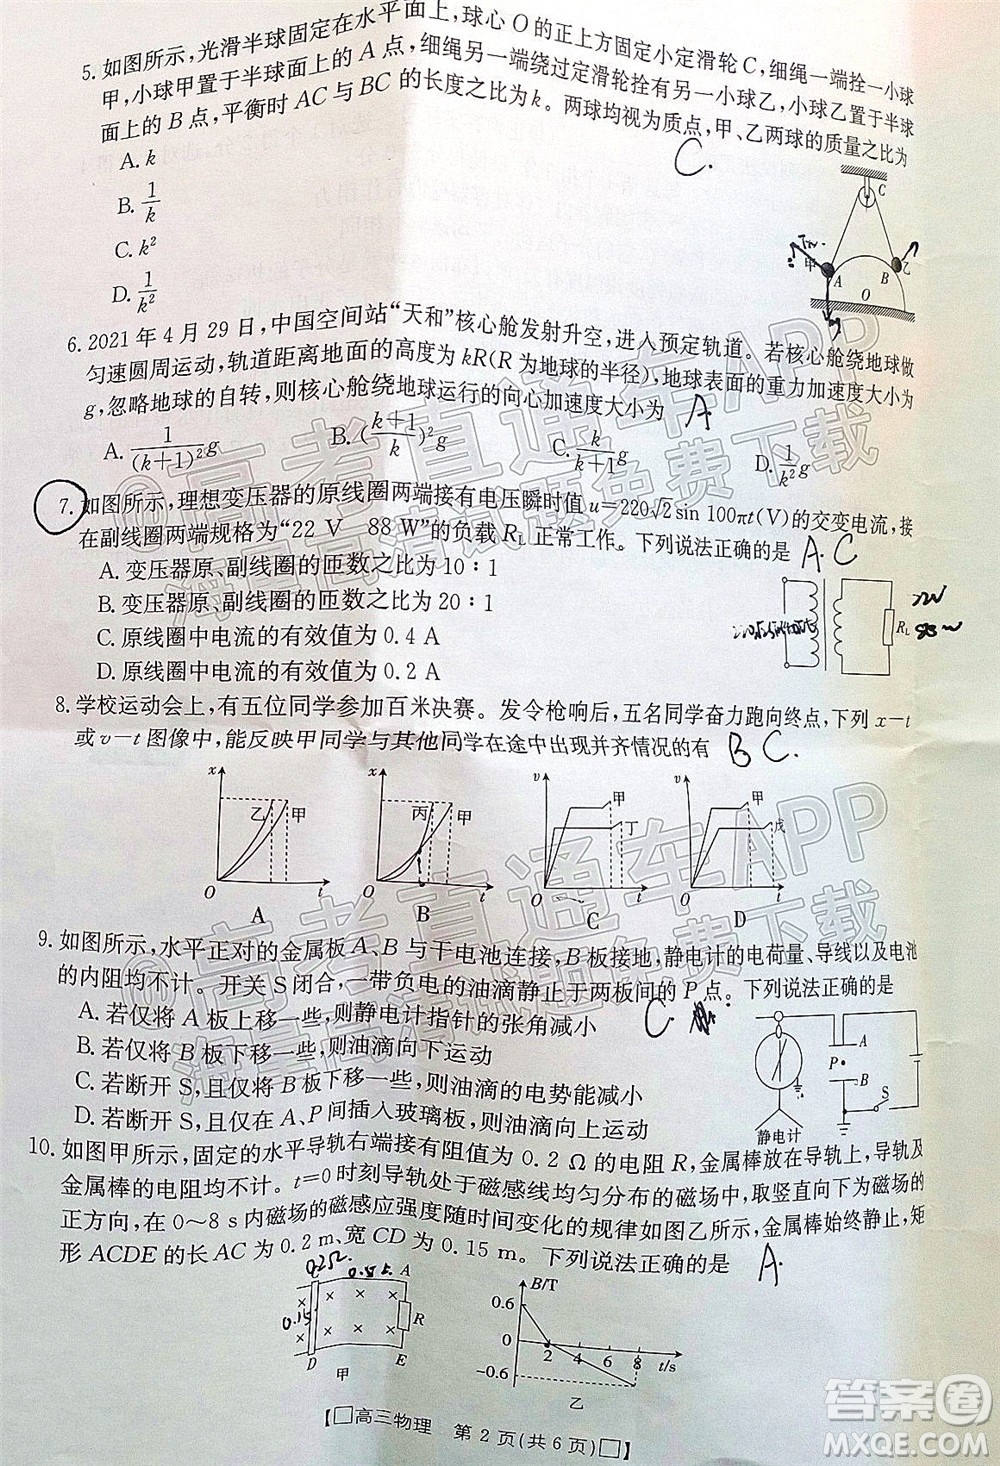 5. 如图所示,光滑半球固定在水平面上,球心 O 的正上方固定小定滑轮 C,细绳一端拴一小球
甲,小球甲置于半球面上的 A 点,细绳另一端绕过定滑轮拴有另一小球乙,小球乙置于半球
面上的 B 点,平衡时 AC 与 BC 的长度之比为 k。两球均视为质点,甲、乙两球的质量之比为
C.
A. k
B. 1/k
C. k²
D. 1/k²
C
甲
A
B
乙
O
6. 2021 年 4 月 29 日,中国空间站“天和”核心舱发射升空,进入预定轨道。若核心舱绕地球做
匀速圆周运动,轨道距离地面的高度为 kR(R 为地球的半径),地球表面的重力加速度大小为
g,忽略地球的自转,则核心舱绕地球运行的向心加速度大小为 A
A. 1/(k+1)² g B. ((k+1)/k)² g C. k/(k+1) g D. 1/k² g
7. 如图所示,理想变压器的原线圈两端接有电压瞬时值 u=220√2 sin 100πt(V)的交变电流,接
在副线圈两端规格为“22 V 88 W”的负载 RL 正常工作。下列说法正确的是 A. C
A. 变压器原、副线圈的匝数之比为 10∶1
B. 变压器原、副线圈的匝数之比为 20∶1
C. 原线圈中电流的有效值为 0.4 A
D. 原线圈中电流的有效值为 0.2 A
RL
8. 学校运动会上,有五位同学参加百米决赛。发令枪响后,五名同学奋力跑向终点,下列 x-t
或 v-t 图像中,能反映甲同学与其他同学在途中出现并齐情况的有 B C.
x 乙 甲 O t A
x 丙 甲 O t B
v 甲 丁 O t C
v 甲 戊 O t D
9. 如图所示,水平正对的金属板 A、B 与干电池连接,B 板接地,静电计的电荷量、导线以及电池
的内阻均不计。开关 S 闭合,一带负电的油滴静止于两板间的 P 点。下列说法正确的是
C
A. 若仅将 A 板上移一些,则静电计指针的张角减小
B. 若仅将 B 板下移一些,则油滴向下运动
C. 若断开 S,且仅将 B 板下移一些,则油滴的电势能减小
D. 若断开 S,且仅在 A、P 间插入玻璃板,则油滴向上运动
A
P
B
S
静电计
10. 如图甲所示,固定的水平导轨右端接有阻值为 0.2 Ω 的电阻 R,金属棒放在导轨上,导轨及
金属棒的电阻均不计。t=0 时刻导轨处于磁感线均匀分布的磁场中,取竖直向下为磁场的
正方向,在 0～8 s 内磁场的磁感应强度随时间变化的规律如图乙所示,金属棒始终静止,矩
形 ACDE 的长 AC 为 0.2 m、宽 CD 为 0.15 m。下列说法正确的是 A.
C A
R
D E
甲
B/T
0.6
0
-0.6
2 4 6 8 t/s
乙
【□高三物理 第 2 页(共 6 页)□】
@高考直通车APP
海量高清试题免费下载
@高考直通车APP
海量高清试题免费下载
答案圈
MXQE.COM